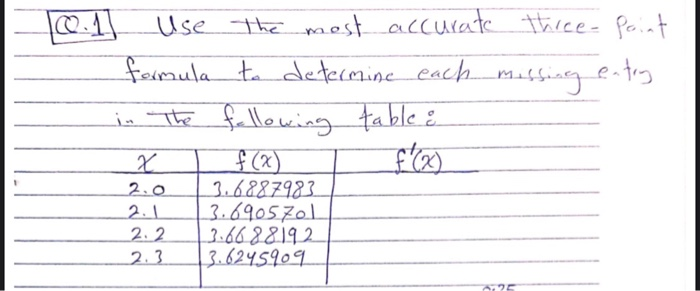 Q.1] Use the most accurate three-point
formula to determine each missing entry
in the following table:
x f(x) f'(x)
2.0 3.6887983
2.1 3.6905701
2.2 3.6688192
2.3 3.6245909